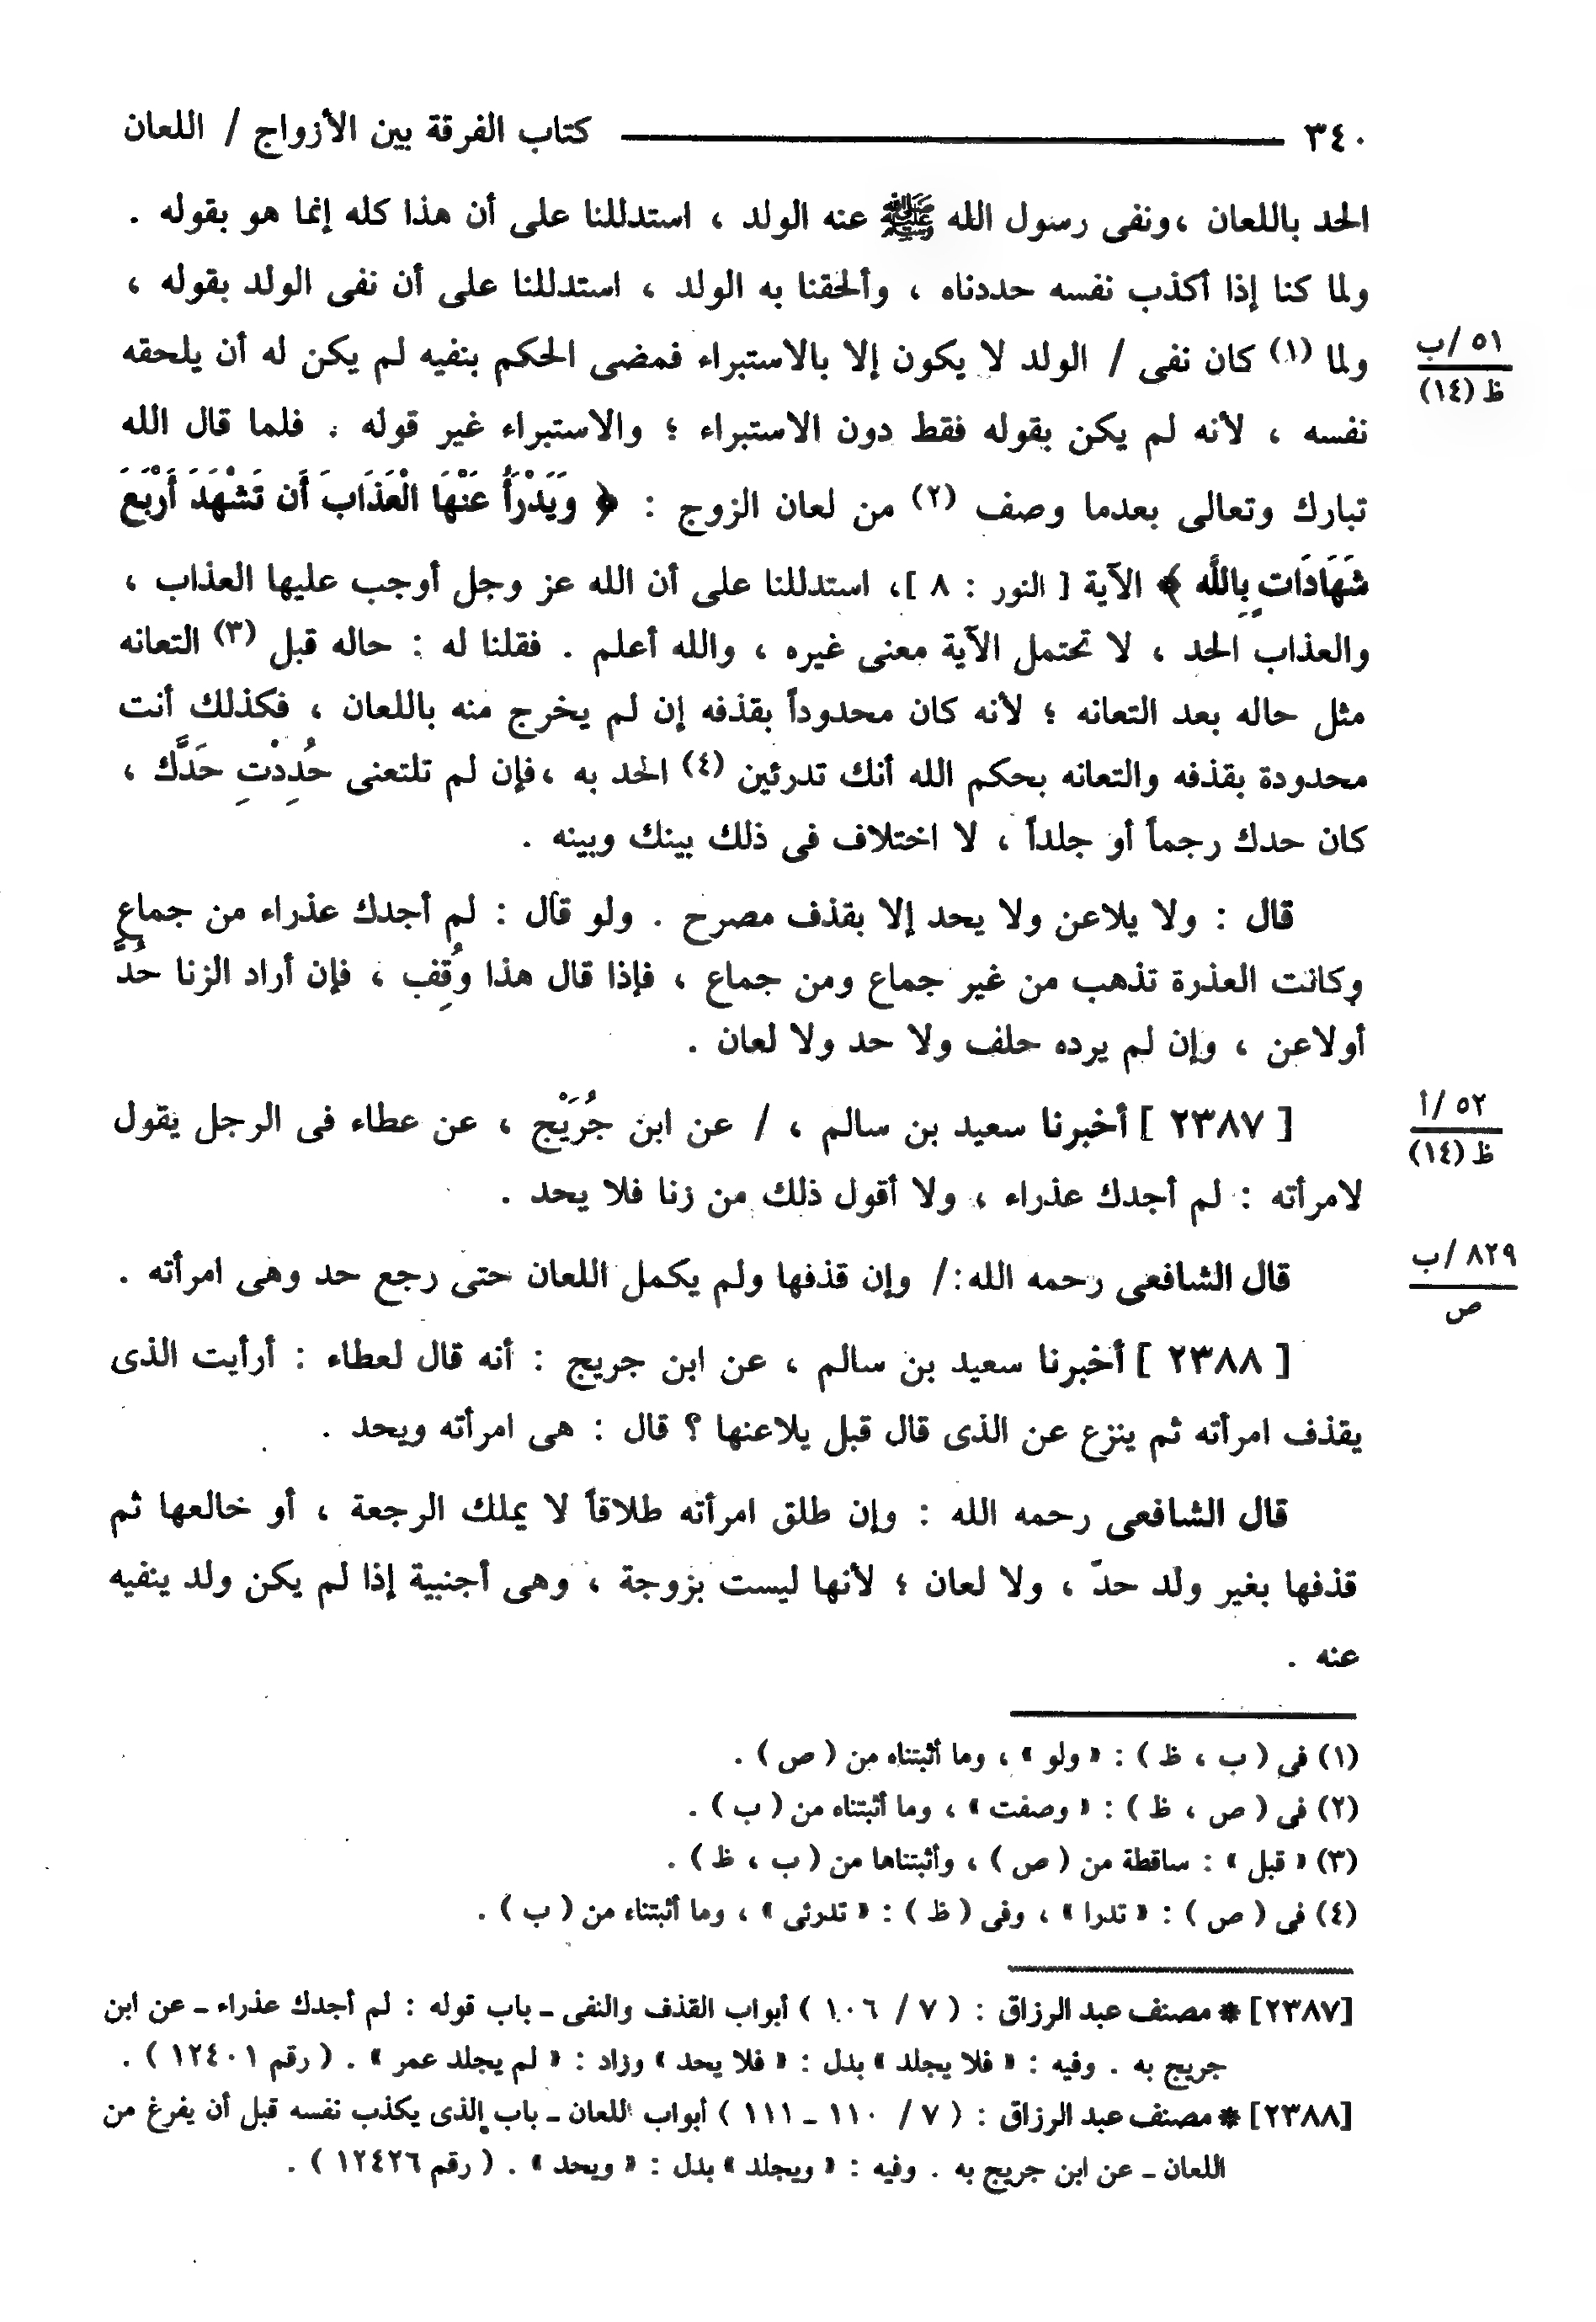 ٣٤٠ كتاب الفرقة بين الأزواج / اللعان
الحد باللعان ،ونفى رسول الله ﷺ عنه الولد ، استدللنا على أن هذا كله إنما هو بقوله .
ولما كنا إذا أكذب نفسه حددناه ، وألحقنا به الولد ، استدللنا على أن نفى الولد بقوله ،
ولما (١) كان نفى / الولد لا يكون إلا بالاستبراء فمضى الحكم بنفيه لم يكن له أن يلحقه
٥١ /ب
ظ (١٤)
نفسه ، لأنه لم يكن بقوله فقط دون الاستبراء ؛ والاستبراء غير قوله . فلما قال الله
تبارك وتعالى بعدما وصف (٢) من لعان الزوج : ﴿ وَيَدْرَأُ عَنْهَا الْعَذَابَ أَن تَشْهَدَ أَرْبَعَ
شَهَادَاتٍ بِاللَّه ﴾ الآية [ النور : ٨ ]، استدللنا على أن الله عز وجل أوجب عليها العذاب ،
والعذاب الحد ، لا تحتمل الآية معنى غيره ، والله أعلم . فقلنا له : حاله قبل (٣) التعانه
مثل حاله بعد التعانه ؛ لأنه كان محدوداً بقذفه إن لم يخرج منه باللعان ، فكذلك أنت
محدودة بقذفه والتعانه بحكم الله أنك تدرئين (٤) الحد به ،فإن لم تلتعنى حُدِدْتِ حَدَّكِ ،
كان حدك رجماً أو جلداً ، لا اختلاف فى ذلك بينك وبينه .
قال : ولا يلاعن ولا يحد إلا بقذف مصرح . ولو قال : لم أجدك عذراء من جماعٍ
وكانت العذرة تذهب من غير جماع ومن جماع ، فإذا قال هذا وُقِف ، فإن أراد الزنا حُدَّ
أولاعن ، وإن لم يرده حلف ولا حد ولا لعان .
[ ٢٣٨٧ ] أخبرنا سعيد بن سالم ، / عن ابن جُرَيْج ، عن عطاء فى الرجل يقول
٥٢ /أ
ظ (١٤)
لامرأته : لم أجدك عذراء ، ولا أقول ذلك من زنا فلا يحد .
قال الشافعى رحمه الله:/ وإن قذفها ولم يكمل اللعان حتى رجع حد وهى امرأته .
٨٢٩ /ب
ص
[ ٢٣٨٨ ] أخبرنا سعيد بن سالم ، عن ابن جريج : أنه قال لعطاء : أرأيت الذى
يقذف امرأته ثم ينزع عن الذى قال قبل يلاعنها ؟ قال : هى امرأته ويحد .
قال الشافعى رحمه الله : وإن طلق امرأته طلاقاً لا يملك الرجعة ، أو خالعها ثم
قذفها بغير ولد حدّ ، ولا لعان ؛ لأنها ليست بزوجة ، وهى أجنبية إذا لم يكن ولد ينفيه
عنه .
(١) فى ( ب ، ظ ) : « ولو » ، وما أثبتناه من ( ص ) .
(٢) فى ( ص ، ظ ) : « وصفت » ، وما أثبتناه من ( ب ) .
(٣) « قبل » : ساقطة من ( ص ) ، وأثبتناها من ( ب ، ظ ) .
(٤) فى ( ص ) : « تدرا » ، وفى ( ظ ) : « تدرئى » ، وما أثبتناه من ( ب ) .
[٢٣٨٧] * مصنف عبد الرزاق : ( ٧ / ١٠٦ ) أبواب القذف والنفى ـ باب قوله : لم أجدك عذراء ـ عن ابن
جريج به . وفيه : « فلا يجلد » بدل : « فلا يحد » وزاد : « لم يجلد عمر » . ( رقم ١٢٤٠١ ) .
[٢٣٨٨] * مصنف عبد الرزاق : ( ٧ / ١١٠ ـ ١١١ ) أبواب اللعان ـ باب الذى يكذب نفسه قبل أن يفرغ من
اللعان ـ عن ابن جريج به . وفيه : « ويجلد » بدل : « ويحد » . ( رقم ١٢٤٢٦ ) .